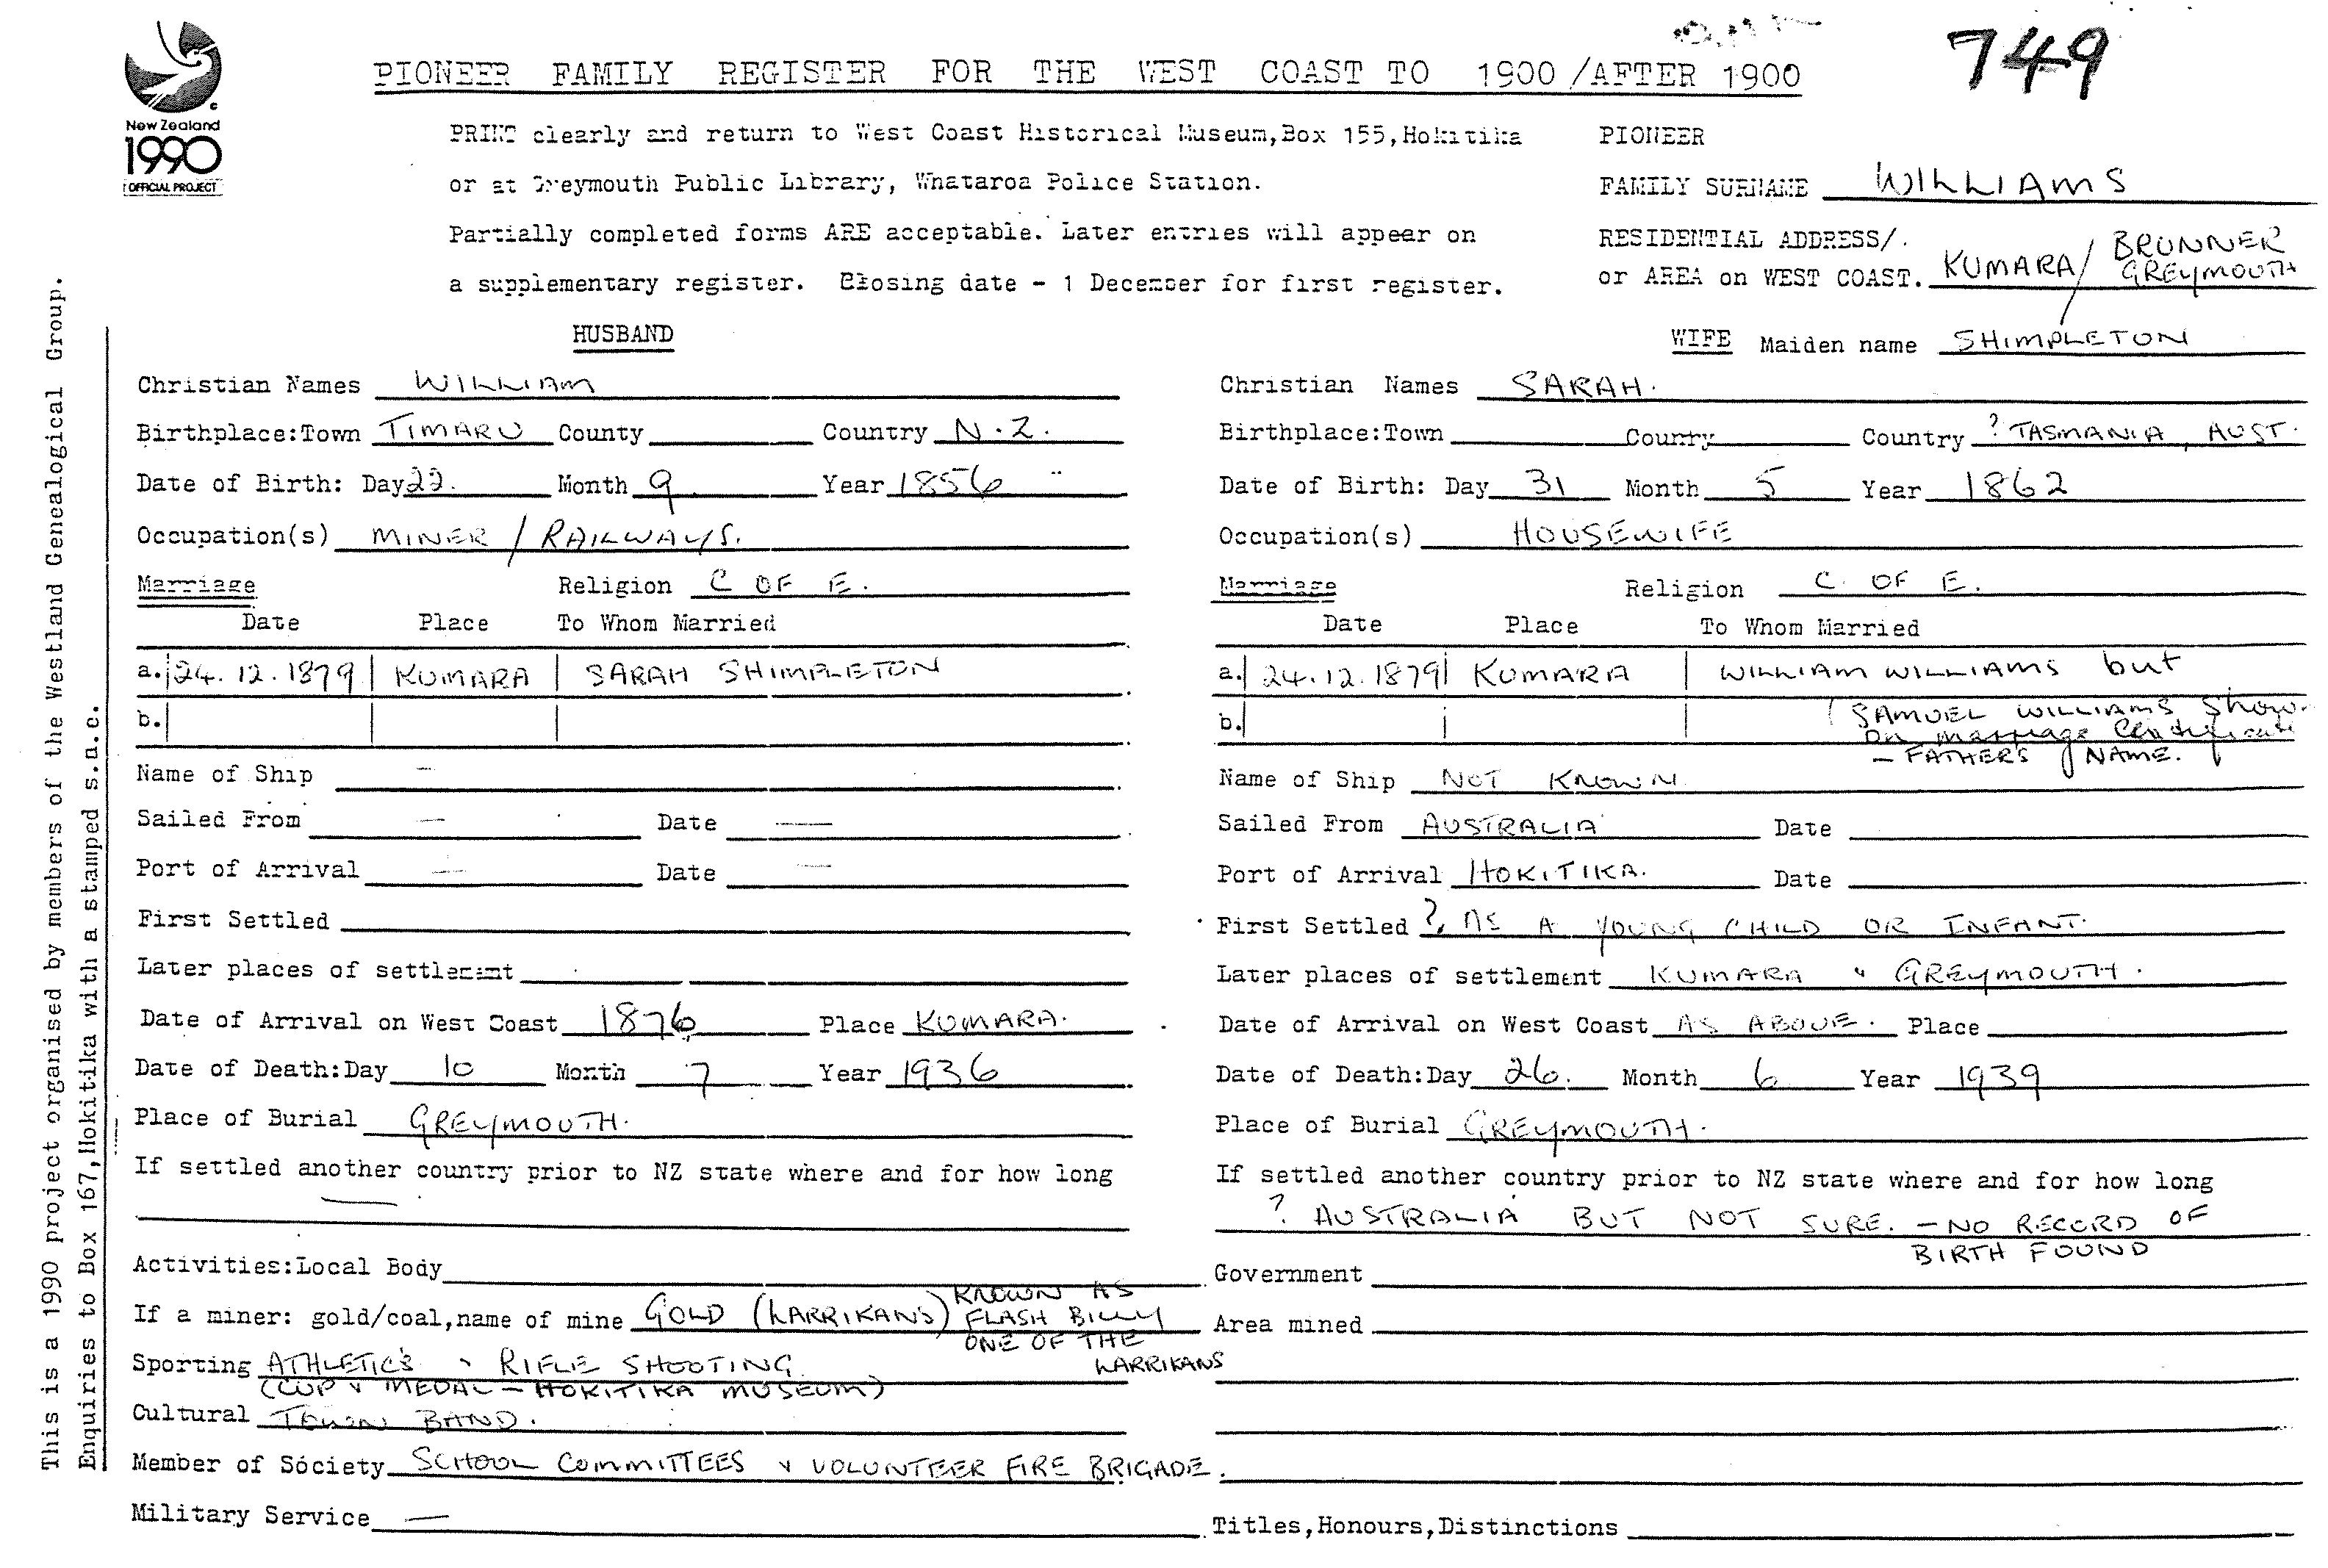 749
PIONEER FAMILY REGISTER FOR THE WEST COAST TO 1900/AFTER 1900
New Zealand
1990
OFFICIAL PROJECT
PRINT clearly and return to West Coast Historical Museum,Box 155,Hokitika
or at Greymouth Public Library, Whataroa Police Station.
Partially completed forms ARE acceptable. Later entries will appear on
a supplementary register. Closing date - 1 December for first register.
PIONEER
FAMILY SURNAME WILLIAMS
RESIDENTIAL ADDRESS/.
or AREA on WEST COAST. KUMARA/ BRUNNER
GREYMOUTH
This is a 1990 project organised by members of the Westland Genealogical Group.
Enquiries to Box 167,Hokitika with a stamped s.a.e.
HUSBAND
Christian Names WILLIAM
Birthplace:Town TIMARU County Country N.Z.
Date of Birth: Day 22. Month 9 Year 1856
Occupation(s) MINER / RAILWAYS.
Marriage Religion C OF E.
Date Place To Whom Married
a. 24.12.1879 KUMARA SARAH SHIMPLETON
b.
Name of Ship —
Sailed From — Date —
Port of Arrival — Date —
First Settled
Later places of settlement
Date of Arrival on West Coast 1876 Place KUMARA.
Date of Death:Day 10 Month 7 Year 1936
Place of Burial GREYMOUTH.
If settled another country prior to NZ state where and for how long
—
WIFE Maiden name SHIMPLETON
Christian Names SARAH.
Birthplace:Town County Country ? TASMANIA, AUST.
Date of Birth: Day 31 Month 5 Year 1862
Occupation(s) HOUSEWIFE
Marriage Religion C. OF E.
Date Place To Whom Married
a. 24.12.1879 KUMARA WILLIAM WILLIAMS but
b. (SAMUEL WILLIAMS Show.
on marriage Certificate
— FATHER'S NAME.
Name of Ship NOT KNOWN
Sailed From AUSTRALIA Date
Port of Arrival HOKITIKA. Date
First Settled ?, AS A YOUNG CHILD OR INFANT.
Later places of settlement KUMARA & GREYMOUTH.
Date of Arrival on West Coast AS ABOVE. Place
Date of Death:Day 26. Month 6 Year 1939
Place of Burial GREYMOUTH.
If settled another country prior to NZ state where and for how long
? AUSTRALIA BUT NOT SURE. - NO RECORD OF
BIRTH FOUND
Activities:Local Body Government
If a miner: gold/coal,name of mine GOLD (LARRIKANS) KNOWN AS
FLASH BILLY
ONE OF THE
LARRIKANS
Area mined
Sporting ATHLETICS & RIFLE SHOOTING
(CUP & MEDAL - HOKITIKA MUSEUM)
Cultural TOWN BAND.
Member of Society SCHOOL COMMITTEES & VOLUNTEER FIRE BRIGADE.
Military Service — Titles,Honours,Distinctions